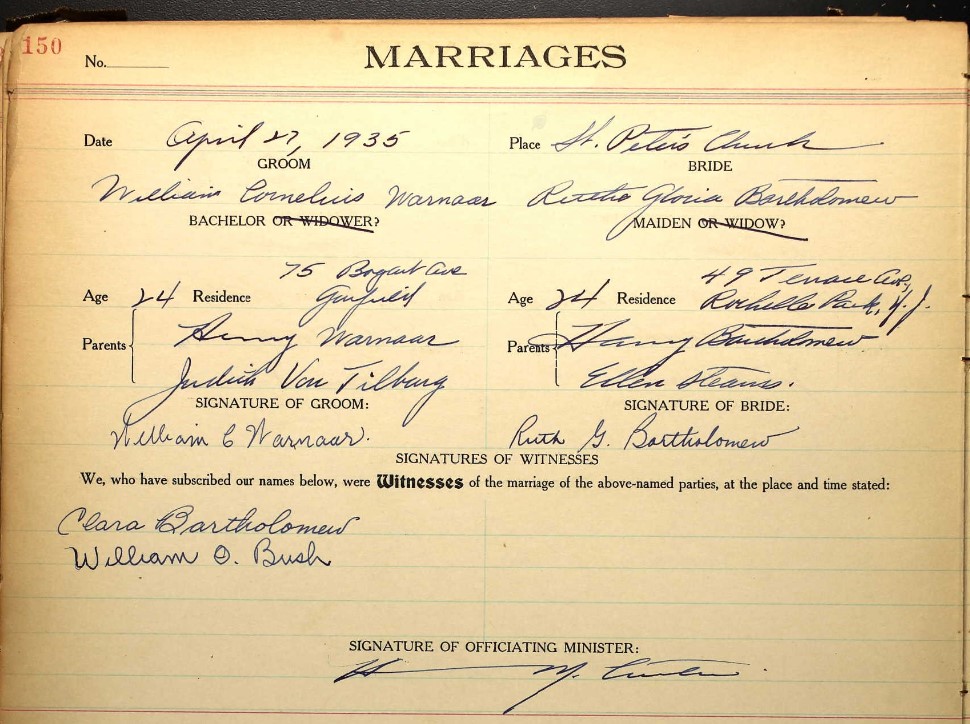 150
No.
MARRIAGES
Date April 27, 1935 Place St. Peter's Church
GROOM BRIDE
William Cornelius Warnaar Ruth Gloria Bartholomew
BACHELOR OR WIDOWER? MAIDEN OR WIDOW?
75 Bogart Ave 49 Terrace Ave,
Age 24 Residence Garfield Age 24 Residence Rochelle Park, N. J.
Parents Henry Warnaar Parents Harry Bartholomew
Judith Van Tilburg Ellen Stearns.
SIGNATURE OF GROOM: SIGNATURE OF BRIDE:
William C Warnaar. Ruth G. Bartholomew
SIGNATURES OF WITNESSES
We, who have subscribed our names below, were Witnesses of the marriage of the above-named parties, at the place and time stated:
Clara Bartholomew
William O. Bush
SIGNATURE OF OFFICIATING MINISTER: